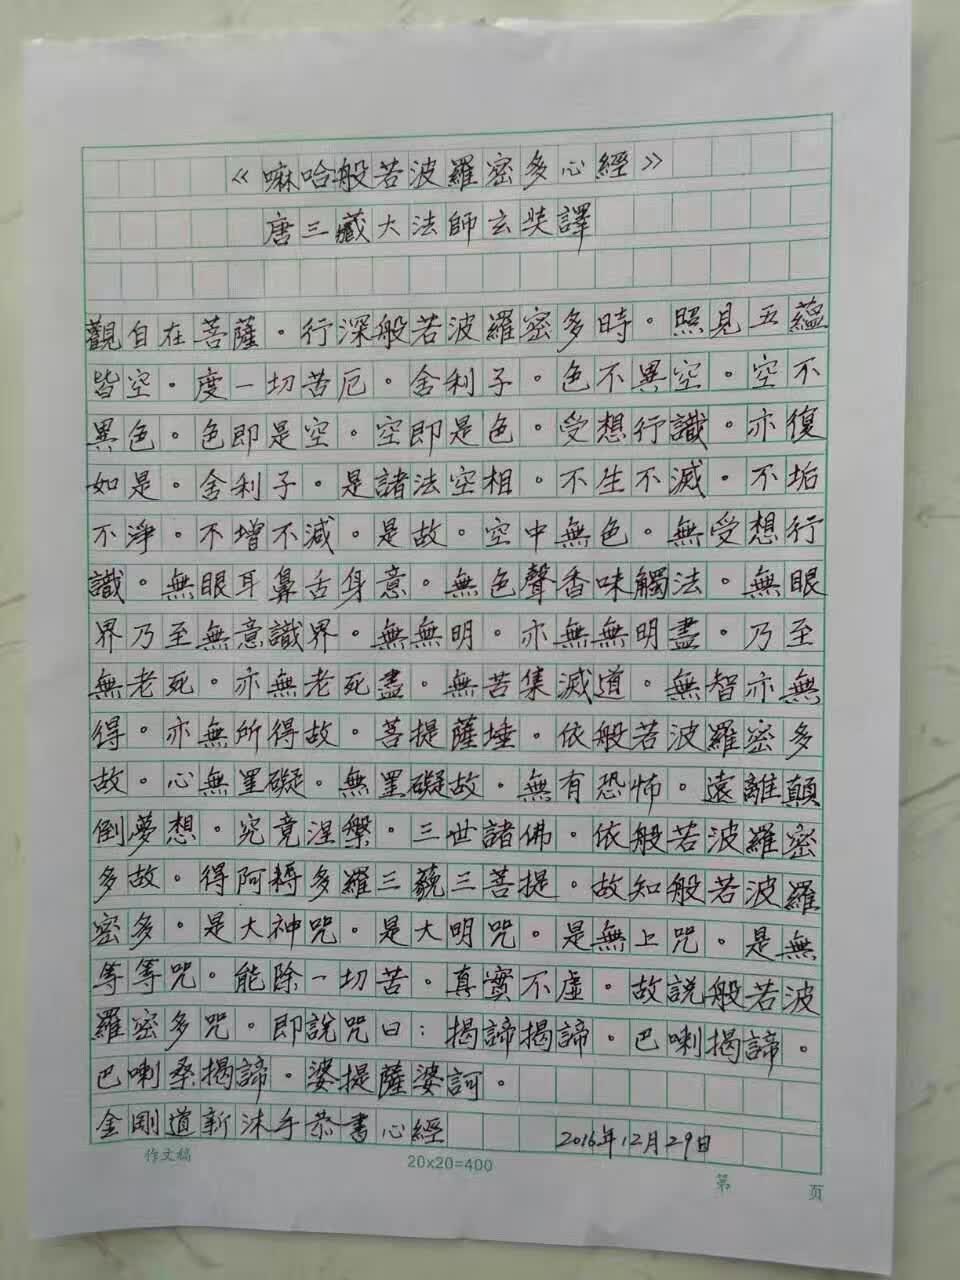 《嘛哈般若波羅密多心經》
唐三藏大法師玄奘譯
觀自在菩薩。行深般若波羅密多時。照見五蘊
皆空。度一切苦厄。舍利子。色不異空。空不
異色。色即是空。空即是色。受想行識。亦復
如是。舍利子。是諸法空相。不生不滅。不垢
不淨。不增不減。是故。空中無色。無受想行
識。無眼耳鼻舌身意。無色聲香味觸法。無眼
界乃至無意識界。無無明。亦無無明盡。乃至
無老死。亦無老死盡。無苦集滅道。無智亦無
得。亦無所得故。菩提薩埵。依般若波羅密多
故。心無罣礙。無罣礙故。無有恐怖。遠離顛
倒夢想。究竟涅槃。三世諸佛。依般若波羅密
多故。得阿耨多羅三藐三菩提。故知般若波羅
密多。是大神咒。是大明咒。是無上咒。是無
等等咒。能除一切苦。真實不虛。故説般若波
羅密多咒。即說咒曰：揭諦揭諦。巴喇揭諦。
巴喇桑揭諦。婆提薩婆訶。
金剛道新沐手恭書心經 2016年12月29日
作文稿 20x20=400 第 页